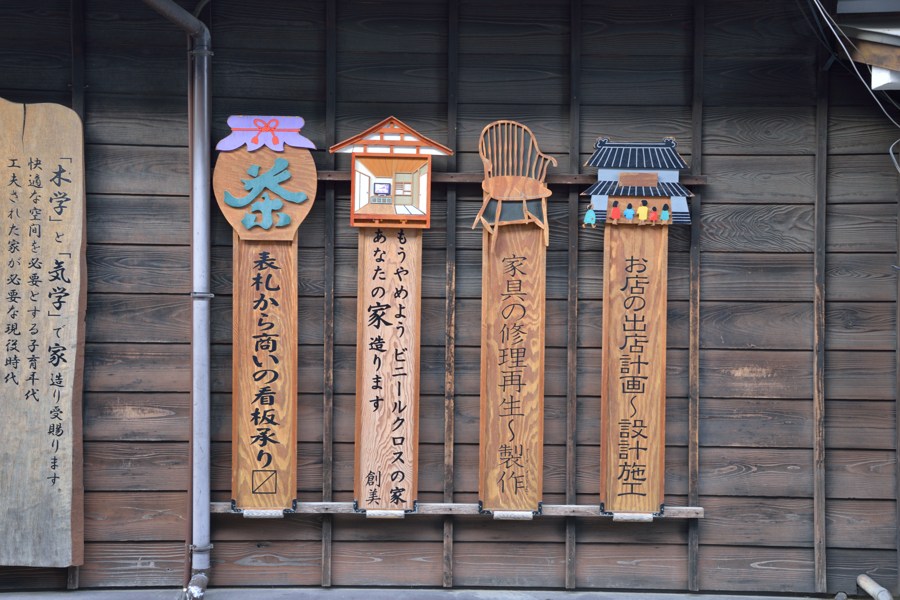 「木学」と「気学」で家造り受賜ります。
快適な空間を必要とする子育年代
工夫された家が必要な現役時代
茶
表札から商いの看板承り〼
もうやめよう ビニールクロスの家
あなたの家造ります
創美
家具の修理再生～製作
お店の出店計画～設計施工